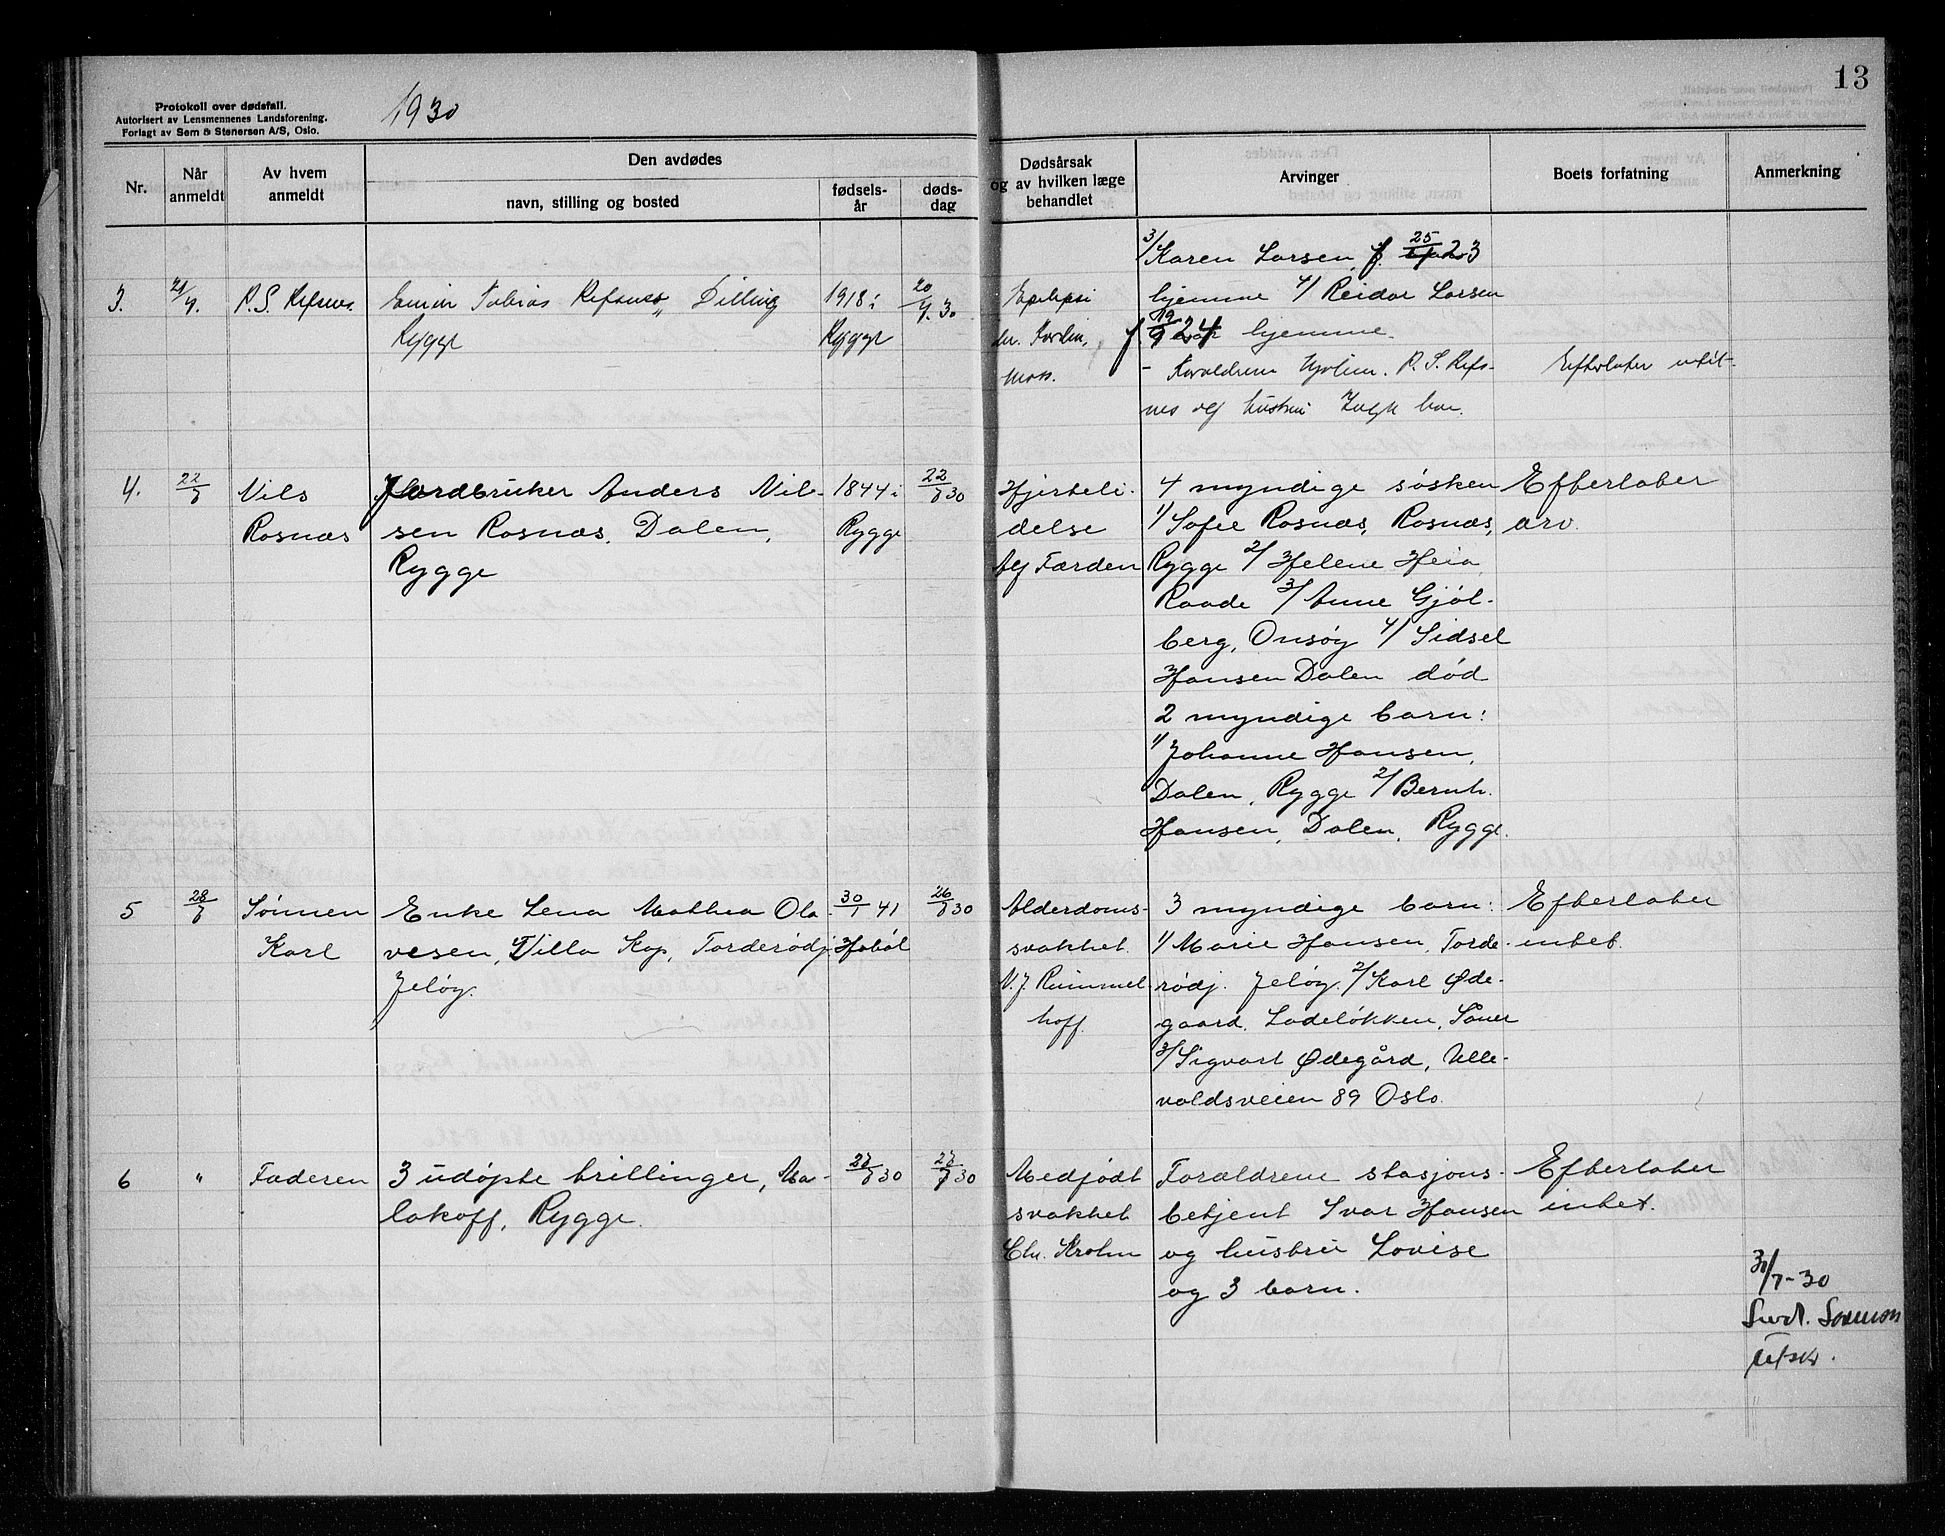 Protokoll over dødsfall.
Autorisert av Lensmennenes Landsforening.
Forlagt av Sem & Stenersen A/S, Oslo.
1930
13
Nr.
Når anmeldt
Av hvem anmeldt
Den avdødes
navn, stilling og bosted
fødsels-
år
døds-
dag
Dødsårsak
og av hvilken læge
behandlet
Arvinger
Boets forfatning
Anmerkning
3/ Karen Larsen, f. 25 23
hjemme 4/ Reidar Larsen
f 19/9 24 hjemme.
3.
21/7.
R. S. Refsnes.
Einar Tobias Refsnes, Dilling
Rygge
1918 i
Rygge
20/7.30
Epilepsi
Moss.
- Forældrene R. S. Refs-
nes og hustru har.
Efterlater intet
4.
22/7
Nils
Rosnæs
Jordbruker Anders Nil-
sen Rosnæs, Dalen,
Rygge
1844 i
Rygge
22/7 30
Hjerteli-
delse
Alf Færden
4 myndige søsken
1/ Sofie Rosnæs, Rosnæs,
Rygge 2/ Helene Heia,
Raade 3/ Anne Gjøl-
berg, Onsøy 4/ Sidsel
Hansen Dalen død
2 myndige barn:
1/ Johanne Hansen,
Dalen, Rygge 2/ Bernh.
Hansen, Dalen, Rygge.
Efterlater
arv.
5
28/7
Sønnen
Karl
Enke Lena Mathea Ola-
vesen, Villa Kap, Torderødj.
Jeløy.
30/1 41
Hobøl
26/7 30
Alderdoms-
svakhet.
N. J. Rummel-
hoff.
3 myndige barn:
1/ Marie Hansen, Torde-
rødj. Jeløy. 2/ Karl Øde-
gaard, Ladeløkken, Såner
3/ Sigvart Ødegård, Ulle-
valdsveien 89 Oslo.
Efterlater
intet.
6
"
Faderen
3 udøpte trillinger, Ma-
lakoff, Rygge.
27/7 30
27/7 30
Medfødt
svakhet
Chr. Krohn
Forældrene stasjons-
betjent Ivar Hansen
og hustru Lovise
og 3 barn.
Efterlater
intet.
31/7-30
Utskr.